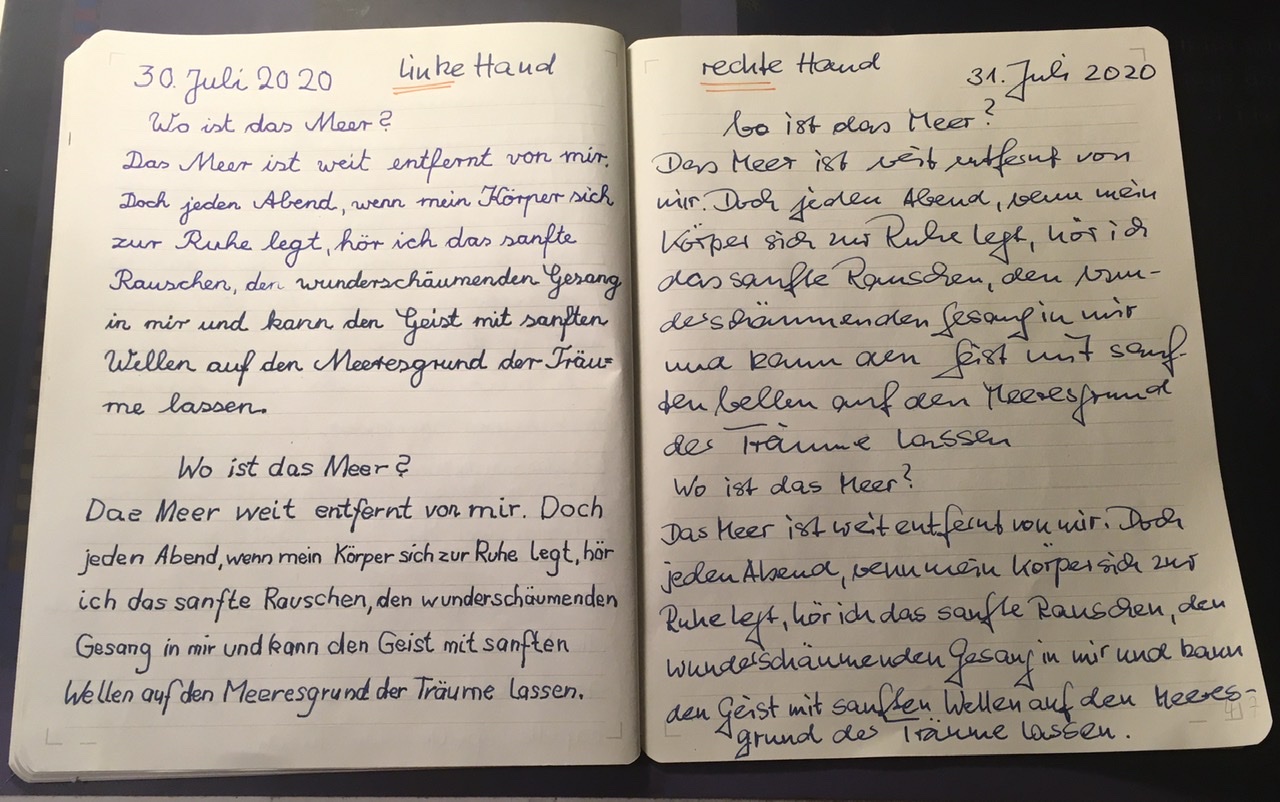 30. Juli 2020 linke Hand
Wo ist das Meer?
Das Meer ist weit entfernt von mir.
Doch jeden Abend, wenn mein Körper sich
zur Ruhe legt, hör ich das sanfte
Rauschen, den wunderschäumenden Gesang
in mir und kann den Geist mit sanften
Wellen auf den Meeresgrund der Träu=
me lassen.
Wo ist das Meer?
Das Meer weit entfernt von mir. Doch
jeden Abend, wenn mein Körper sich zur Ruhe legt, hör
ich das sanfte Rauschen, den wunderschäumenden
Gesang in mir und kann den Geist mit sanften
Wellen auf den Meeresgrund der Träume lassen.
rechte Hand 31. Juli 2020
Wo ist das Meer?
Das Meer ist weit entfernt von
mir. Doch jeden Abend, wenn mein
Körper sich zur Ruhe legt, hör ich
das sanfte Rauschen, den wun-
derschäumenden Gesang in mir
und kann den Geist mit sanf-
ten Wellen auf den Meeresgrund
der Träume lassen
Wo ist das Meer?
Das Meer ist weit entfernt von mir. Doch
jeden Abend, wenn mein Körper sich zur
Ruhe legt, hör ich das sanfte Rauschen, den
wunderschäumenden Gesang in mir und kann
den Geist mit sanften Wellen auf den Meeres-
grund der Träume lassen.